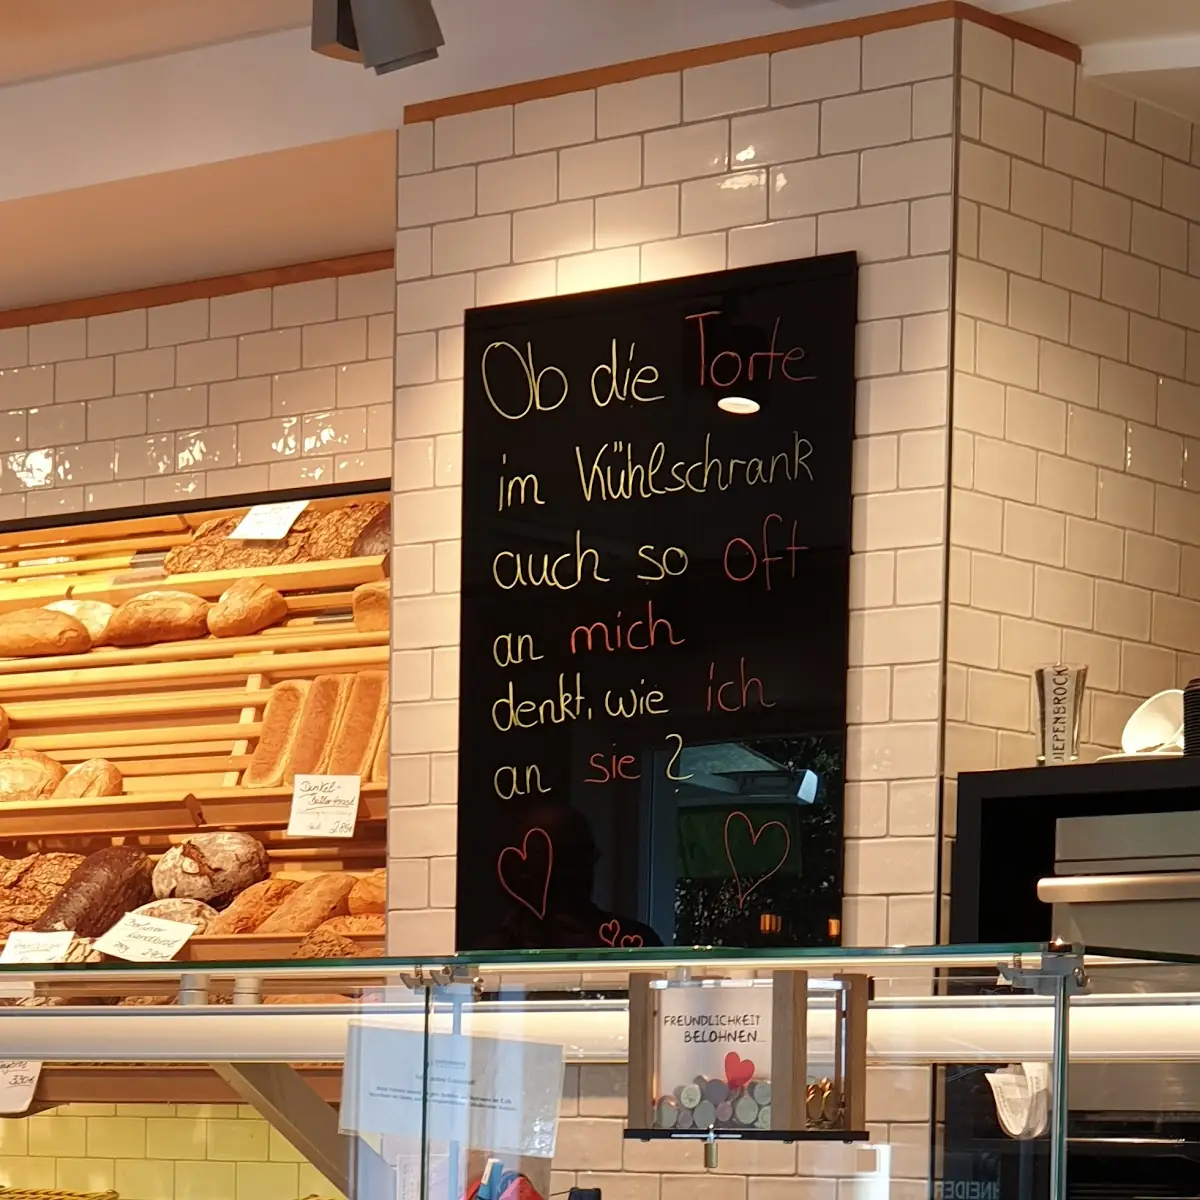 Ob die Torte
im Kühlschrank
auch so oft
an mich
denkt, wie ich
an sie?
Dinkel-
2.85€
DIEPENBROCK
FREUNDLICHKEIT
BELOHNEN...
3.30€